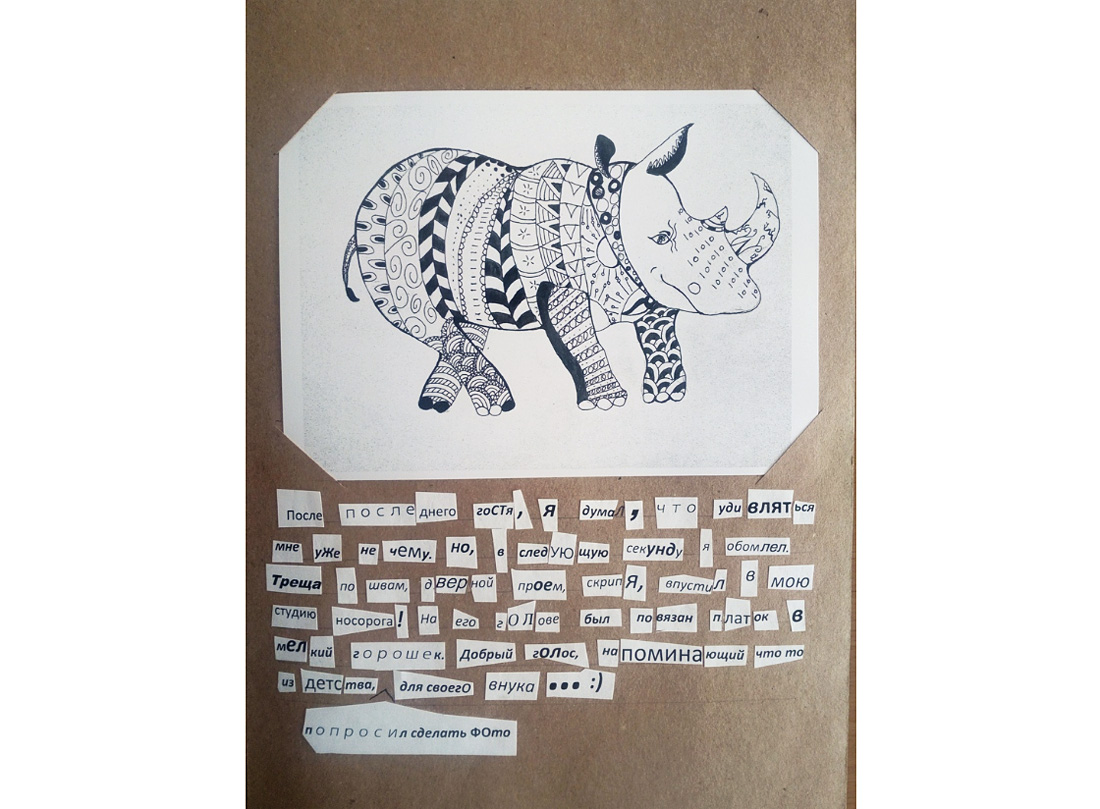 После последнего гоСТя, я думал, что удивляться
мне уЖе не чему. но, в следУЮщую секунду я обомлел.
Треща по швам, двернОй проем, скрипЯ, впустил в мою
студию носорога! На его гОЛове был повязан платок в
мЕЛкий горошек. Добрый гОЛос, напоминающий что то
из детства, для своегО внука ... :)
попросил сделать ФОто